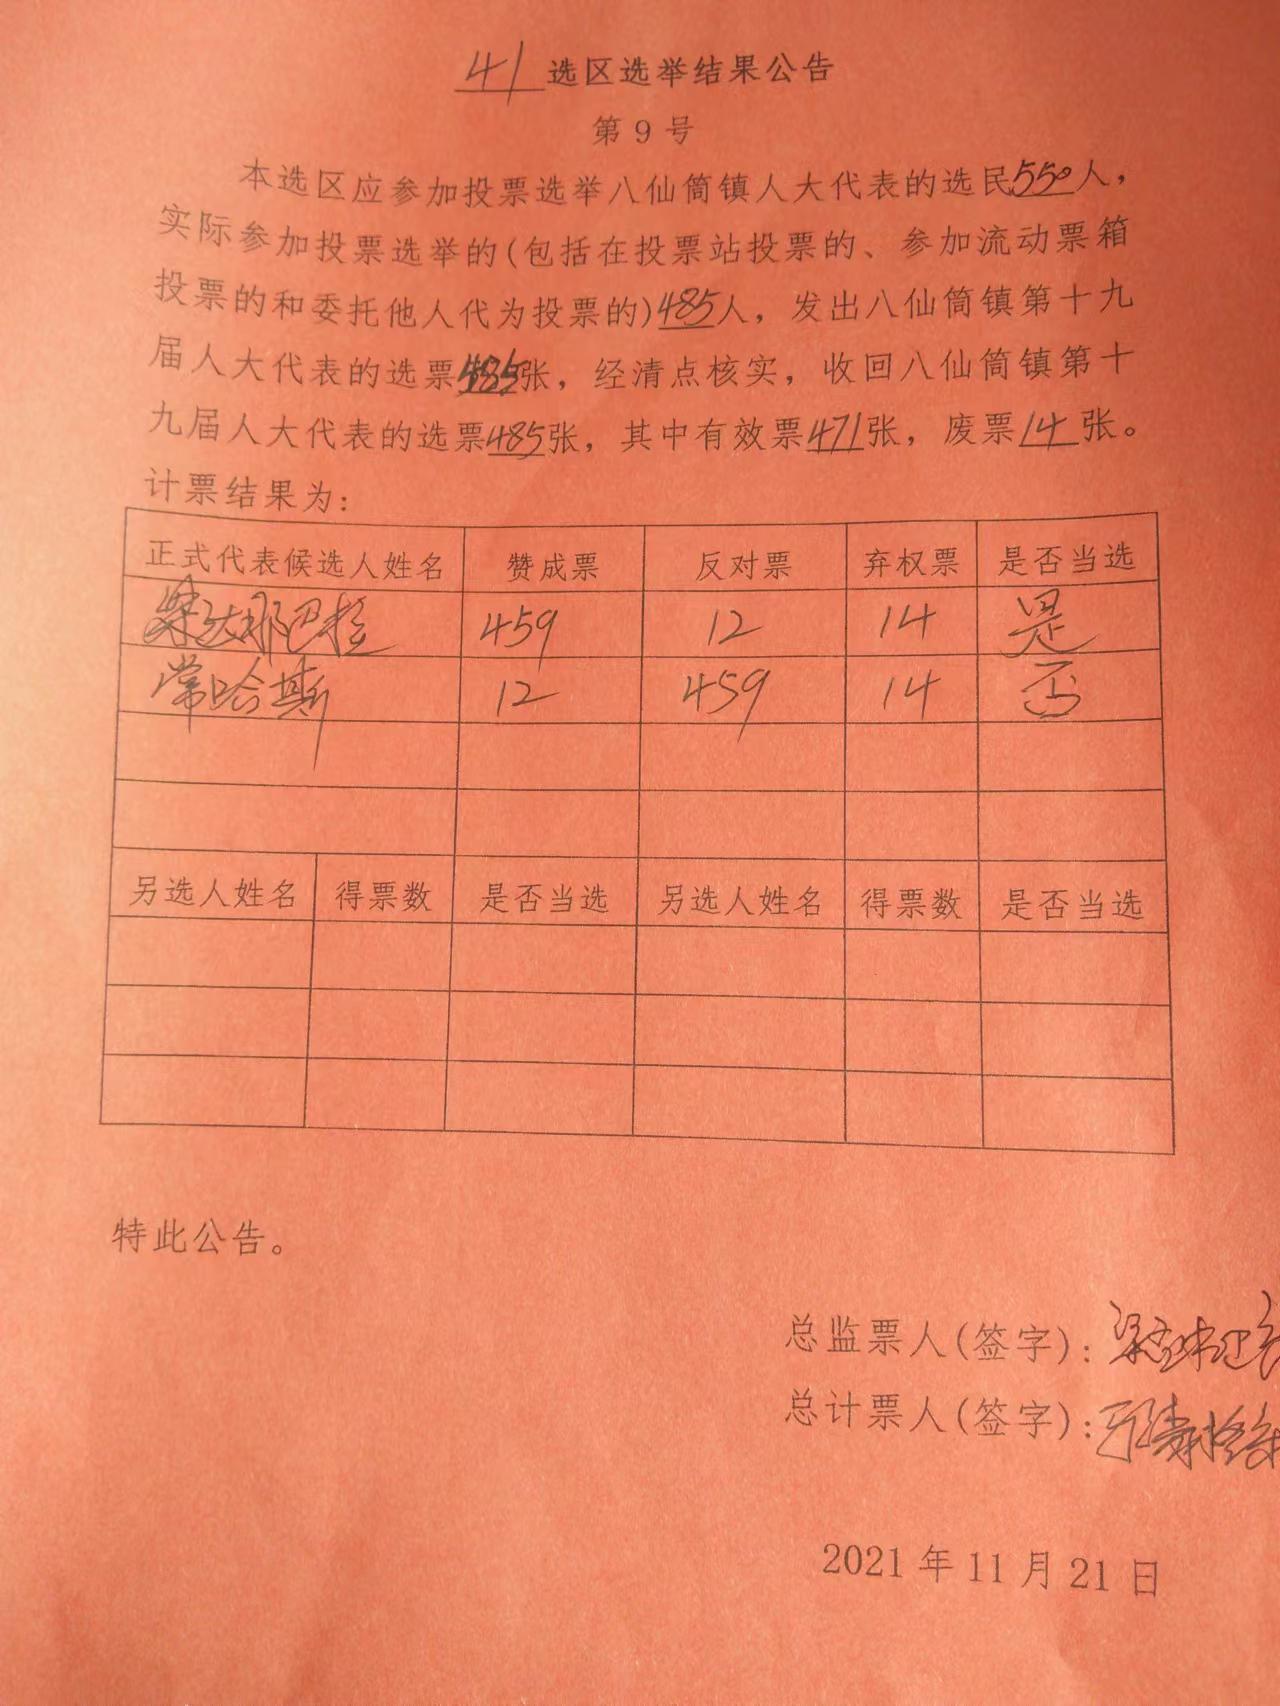 41选区选举结果公告
第9号
本选区应参加投票选举八仙筒镇人大代表的选民550人，
实际参加投票选举的(包括在投票站投票的、参加流动票箱
投票的和委托他人代为投票的)485人，发出八仙筒镇第十九
届人大代表的选票485张，经清点核实，收回八仙筒镇第十
九届人大代表的选票485张，其中有效票471张，废票14张。
计票结果为：
正式代表候选人姓名 赞成票 反对票 弃权票 是否当选
那巴拉 459 12 14 是
常哈斯 12 459 14 否
另选人姓名 得票数 是否当选 另选人姓名 得票数 是否当选
特此公告。
总监票人(签字)：
总计票人(签字)：
2021年11月21日